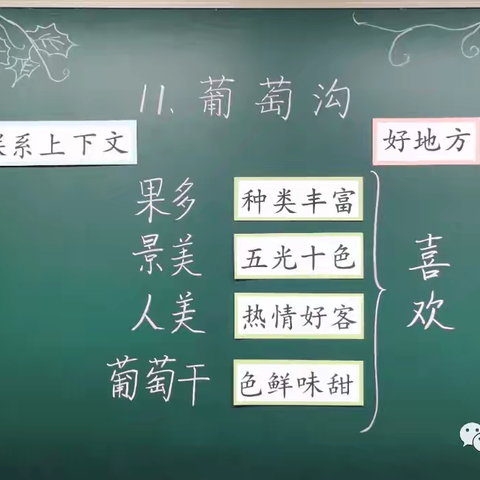 11. 葡萄沟
联系上下文 好地方
果多 种类丰富
景美 五光十色
人美 热情好客
葡萄干 色鲜味甜
喜欢